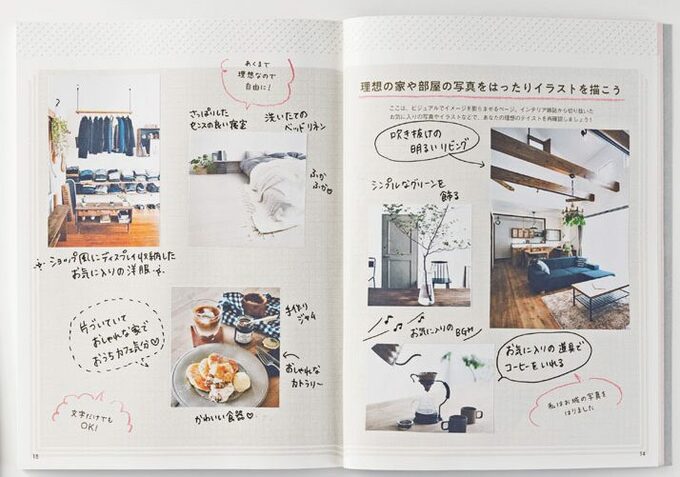 あくまで
理想なので
自由に!
さっぱりした
センスの良い寝室
洗いたての
ベッドリネン
ふか
ふか♡
ショップ風にディスプレイ収納した
お気に入りの洋服
片づいていて
おしゃれな家で
おうちカフェ気分♡
手作り
ジャム
おしゃれな
カトラリー
かわいい食器♡
文字だけでも
OK!
18
理想の家や部屋の写真をはったりイラストを描こう
ここは、ビジュアルでイメージを膨らませるページ。インテリア雑誌から切り抜いた
お気に入りの写真やイラストなどで、あなたの理想のテイストを再確認しましょう!
吹き抜けの
明るいリビング
シンプルなグリーンを
飾る
お気に入りのBGM
お気に入りの道具で
コーヒーをいれる
私はお城の写真を
はりました
14